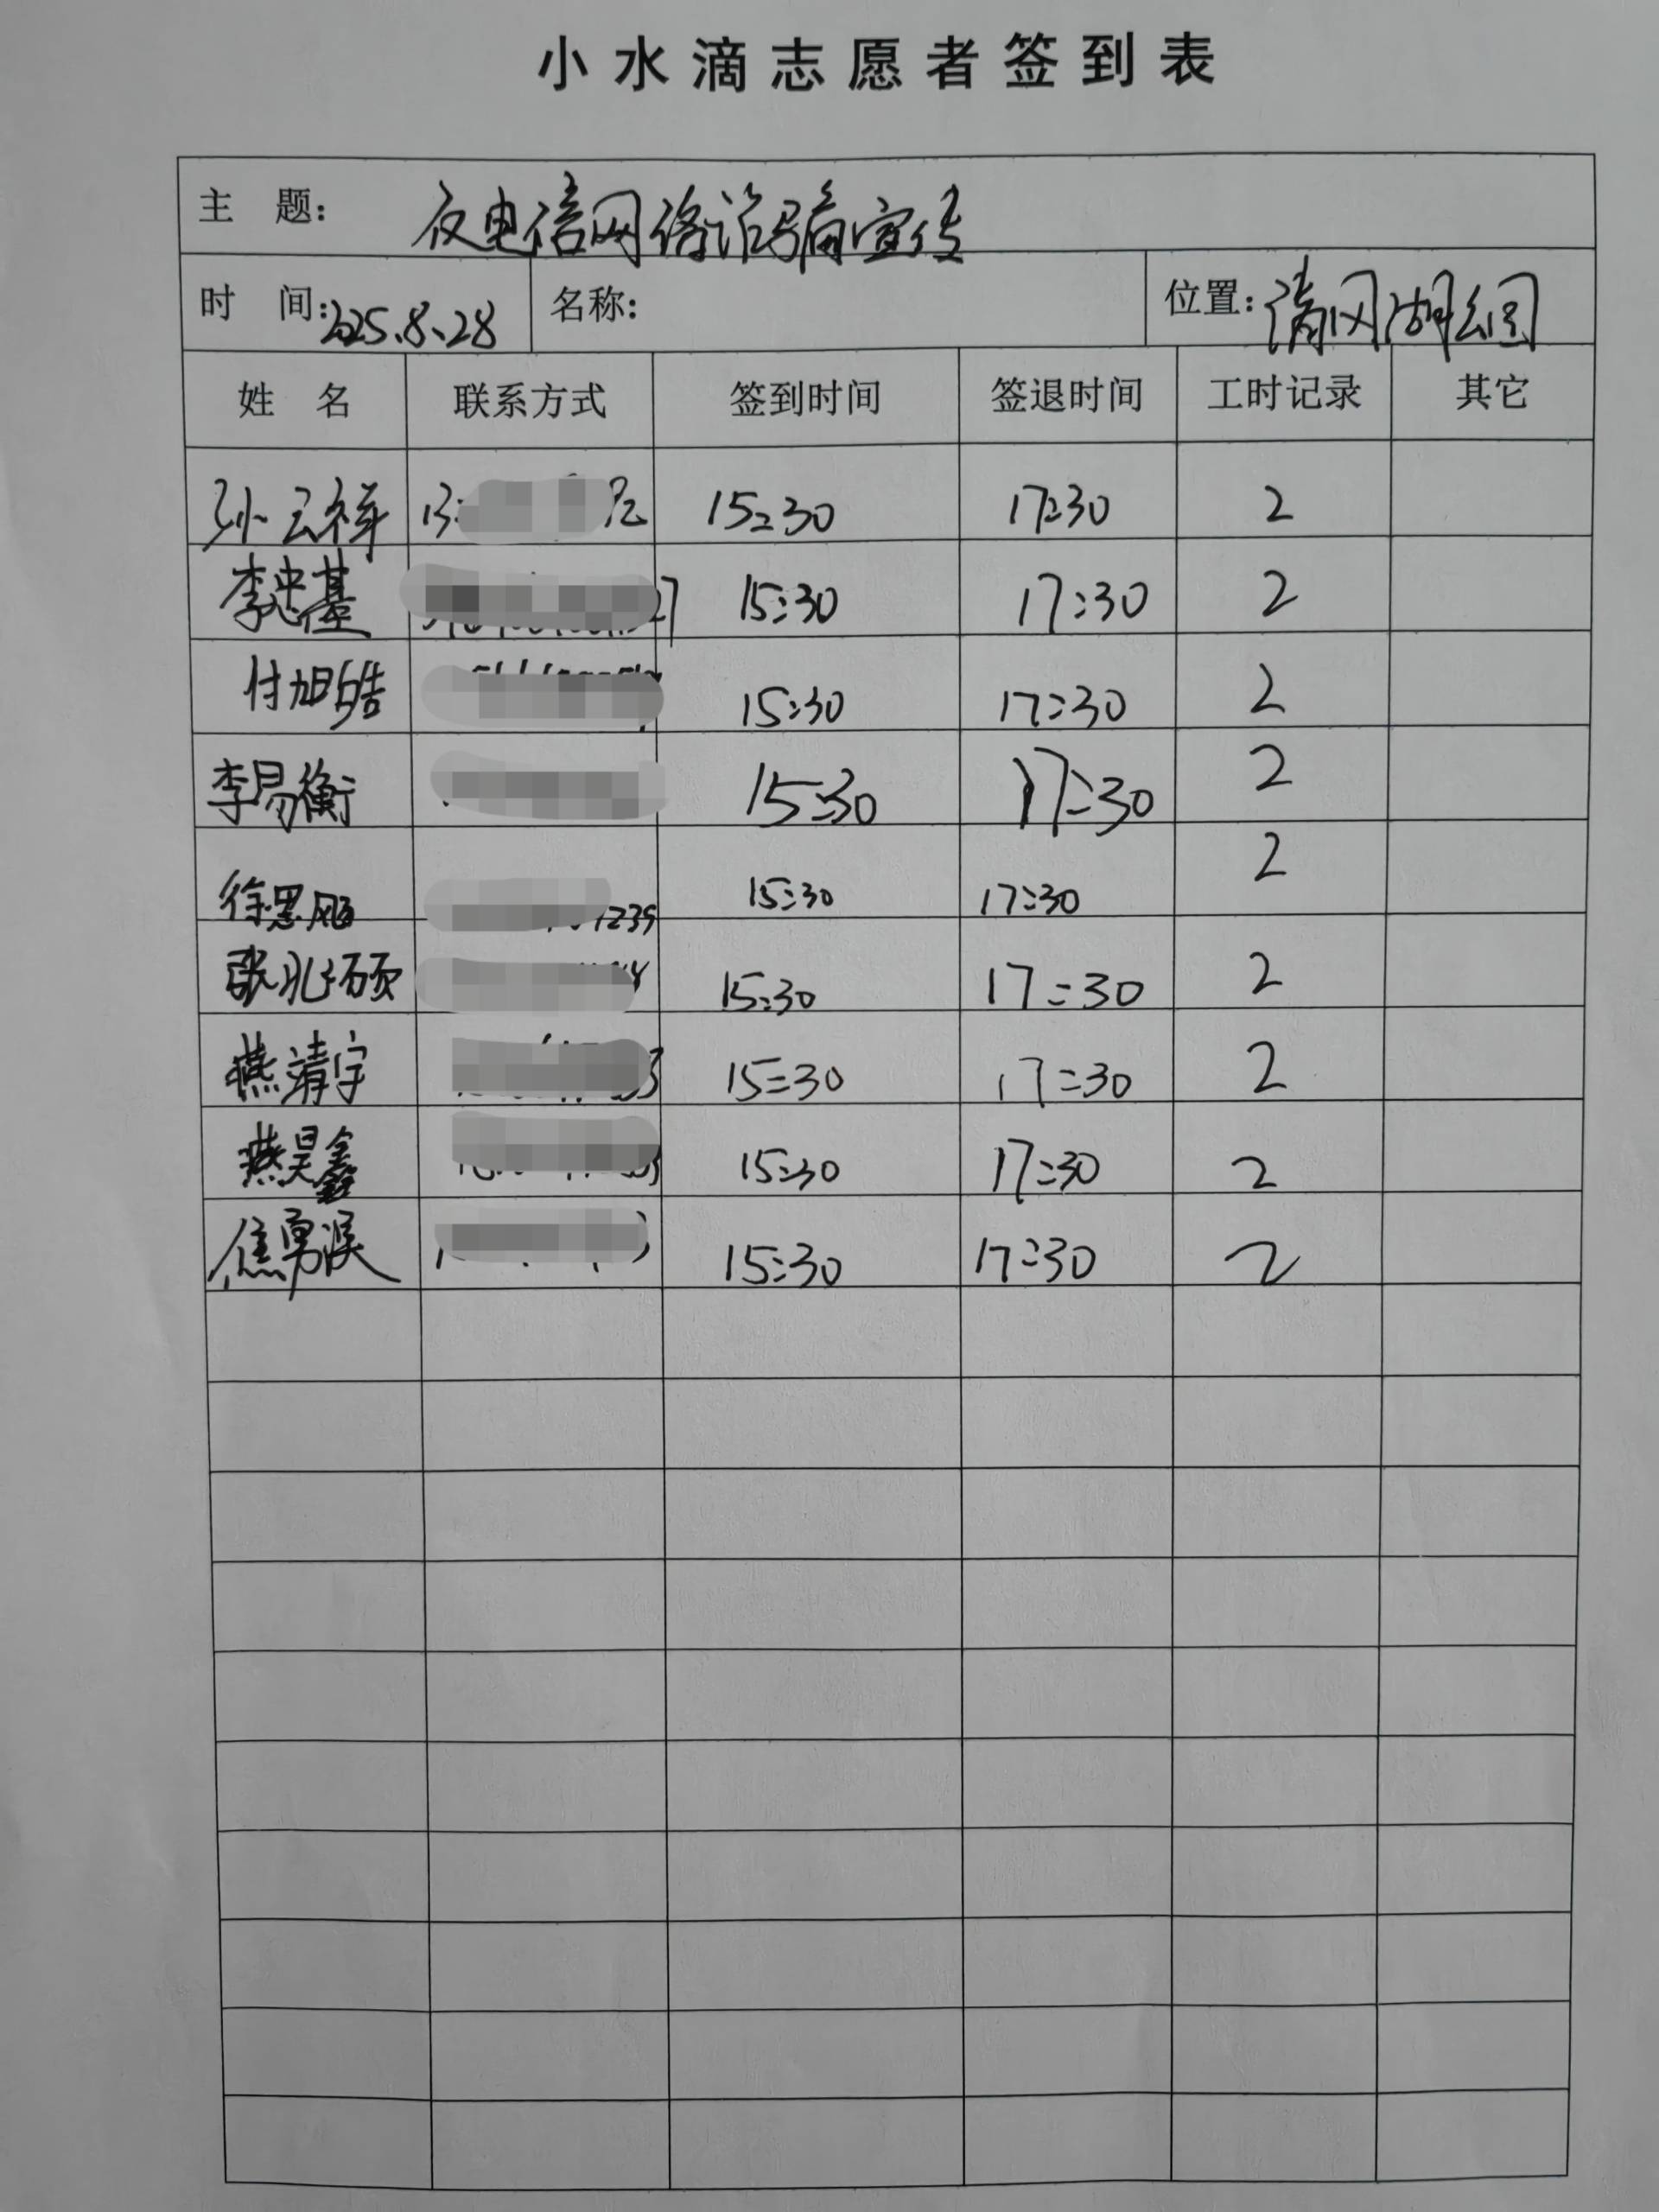 小水滴志愿者签到表
主 题： 反电信网络诈骗宣传
时 间：2025.8.28 名称： 位置：清风湖公园
姓 名 联系方式 签到时间 签退时间 工时记录 其它
孙云祥 15:30 17:30 2
李忠基 15:30 17:30 2
付旭皓 15:30 17:30 2
李易衡 15:30 17:30 2
徐 1239 15:30 17:30 2
张兆硕 15:30 17:30 2
燕清宇 15:30 17:30 2
燕昊鑫 15:30 17:30 2
焦勇淏 15:30 17:30 2